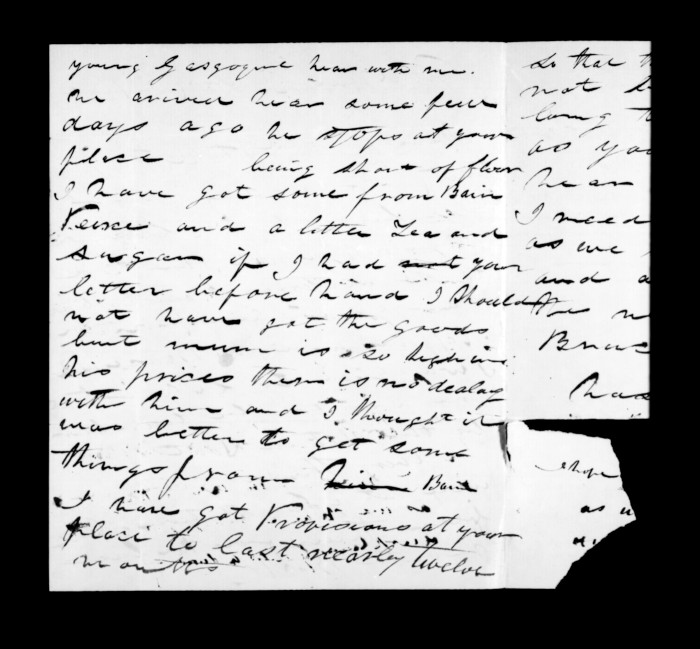 young Gasgogne hear with me.
he arived hear some feew
days ago he stops at your
place being short of flour
I have got some from Bain
Reese and a letter Tea and
sugar if I had not your
letter before hand I should
not have got the goods
but mum is so high in
his prices there is no dealing
with him and I thought it
was better to get some
things from him Bain
I have got Provisions at your
place to last nearly twelve
months
so that
not
long
as you
hear
I need
as we
and a
Bruce
has
hope
as